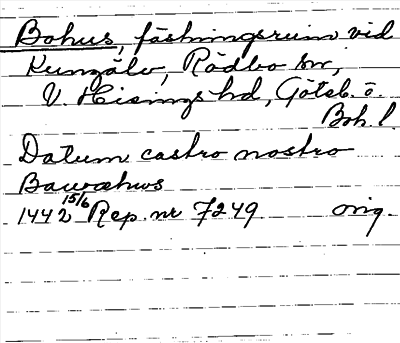 Bohus, fästningsruin vid
Kungälv, Rödbo sn,
V. Hisings hd, Göteb. o.
Boh. l.
Datum castro nostro
Bawæhws
1442 15/6 Rep. nr 7249 orig.